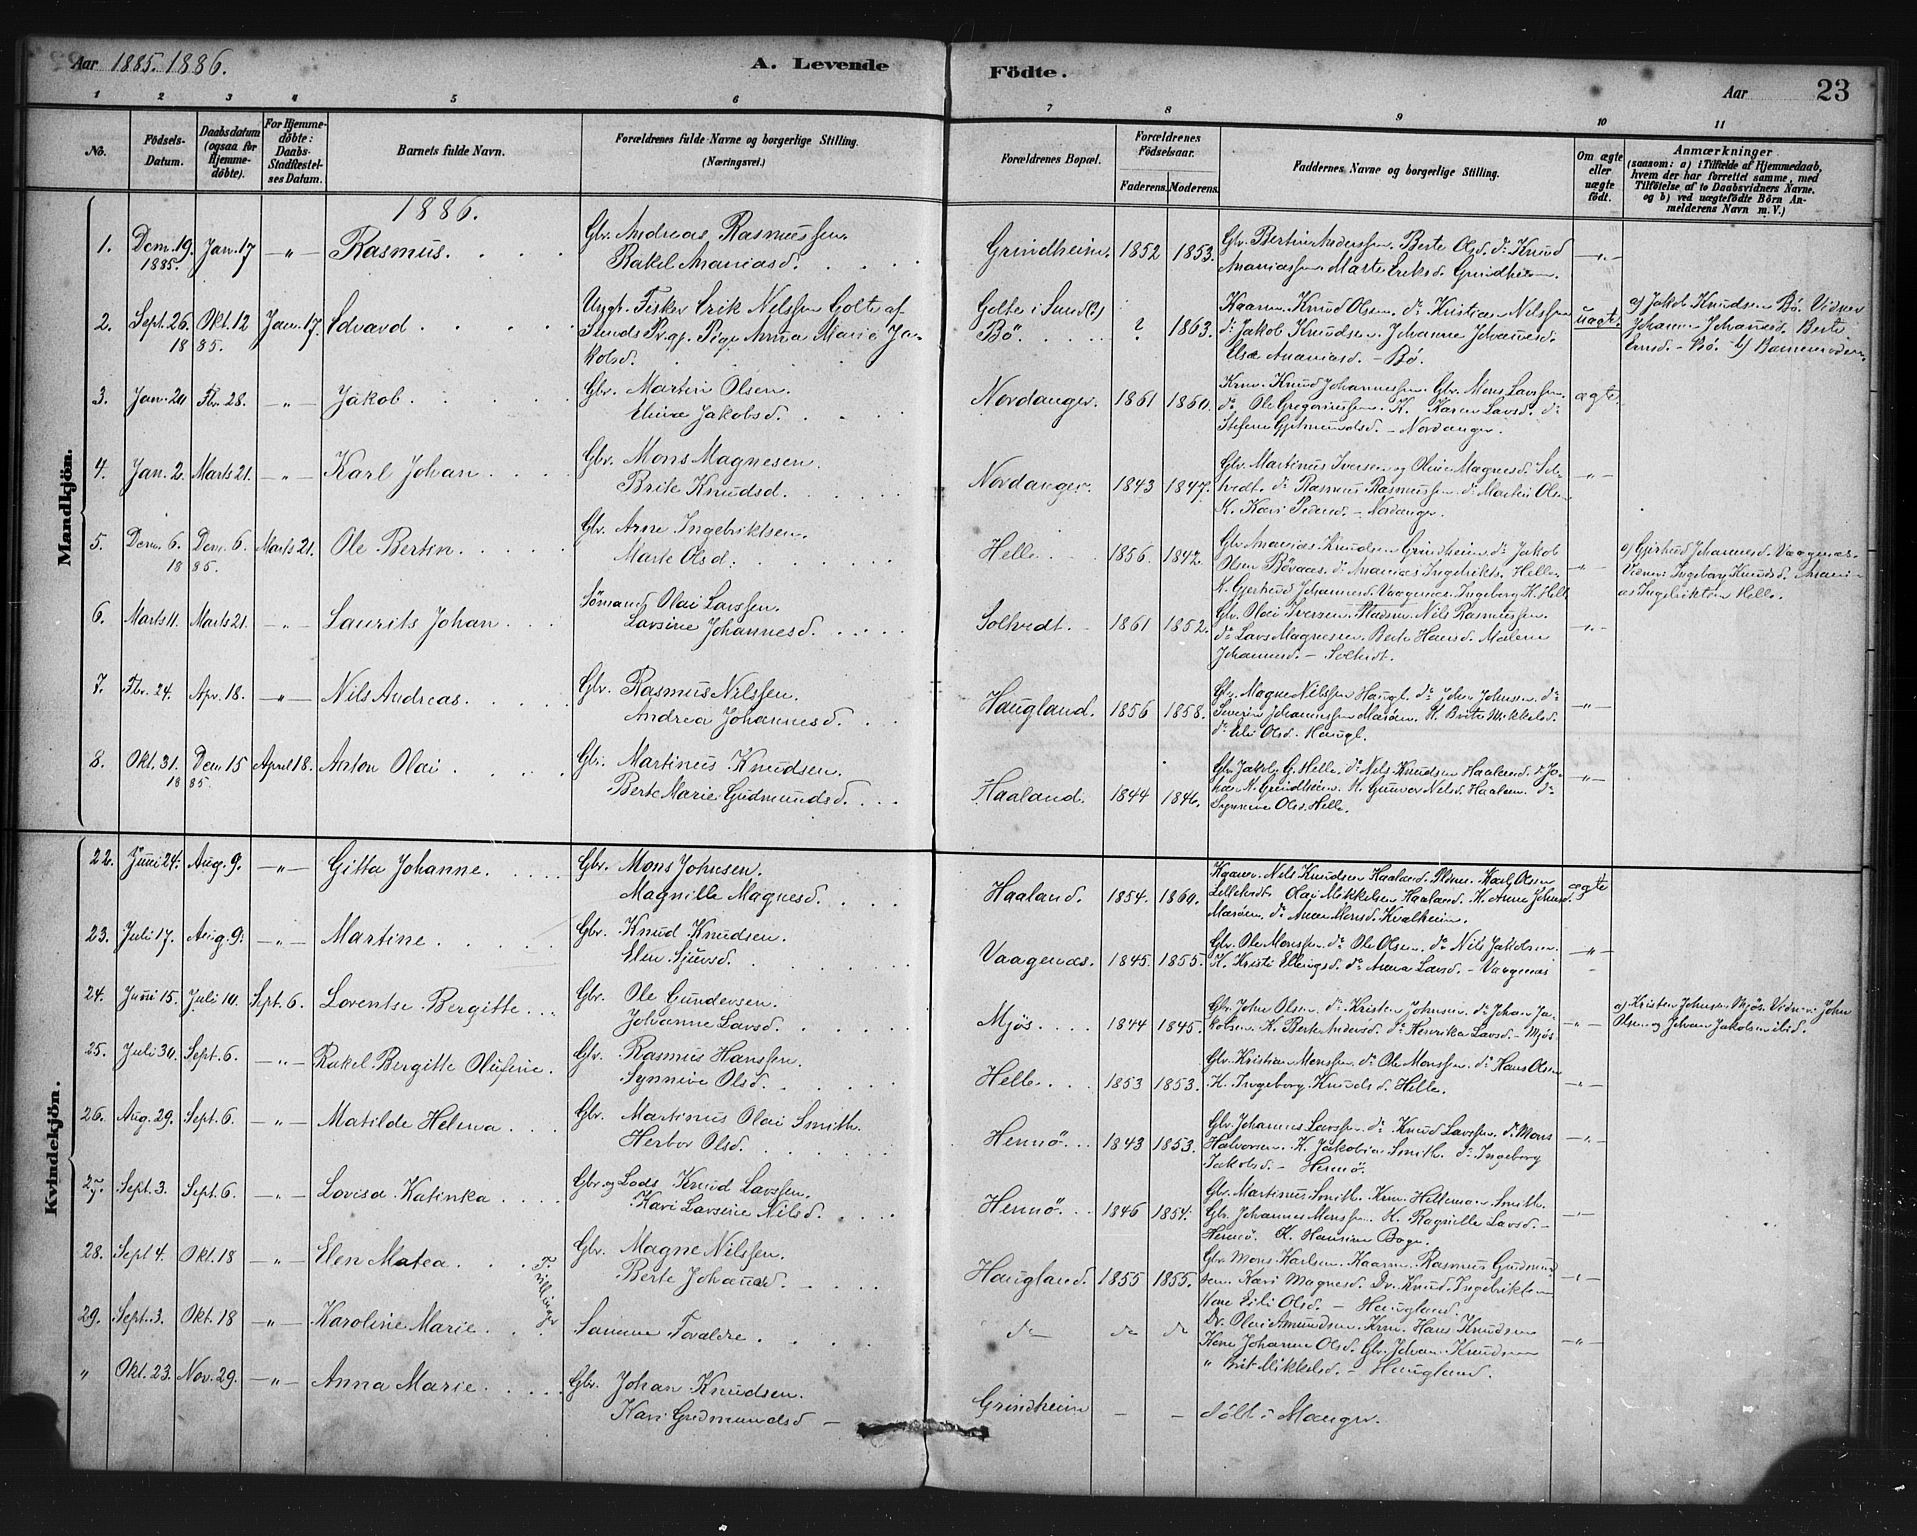 Aar 1885. 1886.
A. Levende
Födte.
Aar
23
1 2 3 4 5 6 7 8 9 10 11
No.
Födsels-Datum.
Daabsdatum (ogsaa for Hjemmedöbte).
For Hjemmedöbte: Daabs-Stadfestelses Datum.
Barnets fulde Navn.
Forældrenes fulde Navne og borgerlige Stilling.
(Næringsvei.)
Forældrenes Bopæl.
Forældrenes Födselsaar.
Faderens. Moderens.
Faddernes Navne og borgerlige Stilling.
Om ægte eller uægte födt.
Anmærkninger
(saasom: a) i Tilfælde af Hjemmedaab,
hvem der har forrettet samme, med
Tilföielse af to Daabsvidners Navne.
og b) ved uægtefödte Börn Anmelderens Navn m. V.)
Mandkjön.
1886.
1. Decm. 19. 1885. Jan. 17 —„— Rasmus. Gbr. Andreas Rasmussen.
Rakel Ananiasd. Grindheim. 1852 1853. Gbr. Bertin Anderssen. Berte Olsd. do Knud
Ananiassen. Marte Eriksd. Grindheim. —„—
2. Sept. 26. Okt. 12 1885. Jan. 17. Edvard. Ungk. Fisker Erik Nilssen Golte af
Sunds Prgj. Pige Anna Marie Jakobsd. Golte i Sund(?)
Bö. ? 1863. Knud Olsen. do Kristian Nilssen
do Jakob Knudsen. Johanne Johannesd.
Else Ananiasd. — Bö. uægte. a) Jakob Knudsen Bö. Vidner
Johanne Johannesd. Berte
— Bö. b) Barnemoderen.
3. Jan. 20. Fbr. 28. —„— Jakob. Gbr. Martin Olsen.
Jakobsd. Nordanger. 1861 1860. Krm. Knud Johannessen. Gbr. Mons Larssen.
do Ole Gregoriussen. K. Karen Larsd. do
— Nordanger. ægte
4. Jan. 2. Marts 21. —„— Karl Johan Gbr. Mons Magnesen.
Brite Knudsd. Nordanger. 1843 1847. Gbr. Martinus Iversen og Oline Magnesd. Soltvedt.
do Rasmus Rasmussen. do Martin Olsen
K. Kari — Nordanger. —„—
5. Decm. 6. Decm. 6. 1885. Marts 21. Ole Bertin. Gbr. Arne Ingebriktsen.
Marte Olsd. Helle 1856. 1842. Gbr. Ananias Knudsen Grindheim. do Jakob
Olsen do Ananias Ingebrikts. Helle
K. Gjertrud Johannesd. Vaagenæs. Ingeborg K. Helle —„— a) Gjertrud Johannesd. Vaagenæs.
Vidner: Ingeborg Knudsd. Ananias
Ingebriktsen Helle.
6. Marts 11. Marts 21. —„— Laurits Johan Sömand Olai Larssen.
Larsine Johannesd. Soltvedt. 1861 1852. Gbr. Olai Iversen. Nils Rasmussen.
do Lars Magnessen. Berte Hansd. Malene
Johannesd. — Soltvedt. —„—
7. Fbr. 24. Apr. 18. —„— Nils Andreas. Gbr. Rasmus Nilssen.
Andrea Johannesd. Haugland. 1856 1858. Gbr. Magne Nilssen Haugl. do John Johnsen. do
Severin Johannessen Maröen. K. Brite Mikkelsd.
do Eli Olsd. Haugl. —„—
8. Okt. 31. Decm. 15 1885. April 18. Anton Olai Gbr. Martinus Knudsen.
Berte Marie Gudmundsd. Haaland. 1844 1846. Gbr. Jakob G. Helle. do Nils Knudsen Haaland. do
Grindheim. K. Gunvor Nilsd. Haaland. do
Synneve Olsd. Helle. —„—
Kvindekjön.
22. Juni 24. Aug. 9. —„— Gitta Johanne. Gbr. Mons Johnsen.
Magnille Magnesd. Haaland. 1854. 1860. Nils Knudsen Haaland. Karl Olsen
Olai Mikkelsen Haaland. K. Anne Johnsd.
Maröen. do Anne Monsd. Kvalheim. ægte
23. Juli 17. Aug. 9. —„— Martine. Gbr. Knud Knudsen.
Elen Sjursd. Vaagenæs. 1845. 1855. Gbr. Ole Monssen. do Ole Olsen. do Nils Jakobsen.
K. Kristi Ellingsd. do Anna Larsd. — Vaagenæs —„—
24. Juni 15. Juli 10. Sept. 6. Lorentse Bergitte. Gbr. Ole Gundersen.
Johanne Larsd. Mjös. 1844 1845. Gbr. John Olsen. do Kristen Johnsen. do Johan Jakobsen.
K. Berte Andersd. do Henrika Larsd. — Mjös —„— a) Kristen Johnsen Mjös. Vidner: John
Olsen og Johan Jakobsen ibid.
25. Juli 30. Sept. 6. —„— Rakel Bergitte Olufine. Gbr. Rasmus Hanssen
Synnive Olsd. Helle 1853 1853. Gbr. Kristian Monssen. do Ole Monssen. do Hans Olsen
K. Ingeborg Knudsd. Helle. —„—
26. Aug. 29. Sept. 6. —„— Matilde Helena Gbr. Martinus Olai Smith.
Herbor Olsd. Hennö. 1843 1853. Gbr. Johannes Larssen. do Knud Larssen. do Mons
Halvorsen. K. Jakobia Smith. do Ingeborg
Jakobsd. — Hennö. —„—
27. Sept. 3. Sept. 6. —„— Lovisa Katinka Gbr. og Lods Knud Larssen.
Kari Larsine Nilsd. Hennö. 1846 1854. Gbr. Martinus Smith. Krm. Smith.
Gbr. Johannes Monssen. K. Ragnille Larsd. —
Hennö. K. Hansine Bogn. —„—
28. Sept. 4. Okt. 18 —„— Elen Matea. Tvillinger Gbr. Magne Nilssen.
Berte Johannesd. Haugland. 1855 1855. Gbr. Mons Karlsen. Rasmus Gudmundsen.
Kari Magnesd. Dr. Knud Ingebriktsen
Kone Eli Olsd. — Haugland. —„—
29. Sept. 3. Okt. 18 —„— Karoline Marie. Samme Forældre do do do Dr. Olai Amundsen. Krm. Hans Knudsen
Kone Johanne Olsd. Gbr. Johan Knudsen
„ Brit Mikkelsd. — Haugland. —„—
„ Okt. 23. Nov. 29. —„— Anna Marie. Gbr. Johan Knudsen.
Kari Gudmundsd — Grindheim — — döbt i Manger.